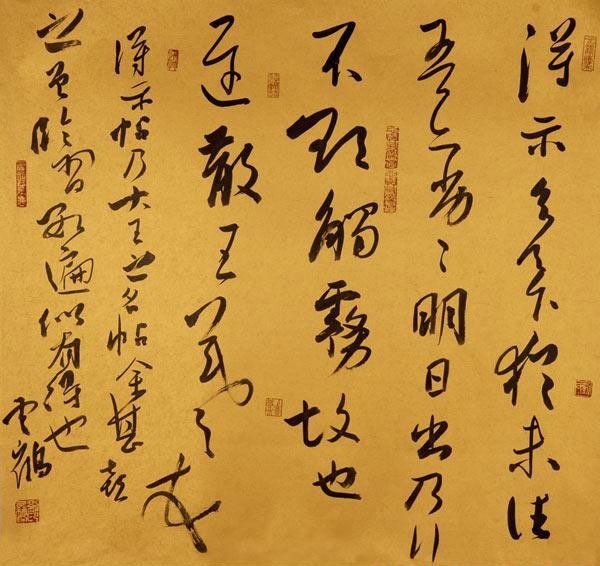 得示知足下猶未佳
吾亦劣〻明日出乃行
不欲觸霧故也
遲散王羲之頓首
得示帖乃大王之名帖余甚喜
之曾臨習數遍似有得也
雲鶴